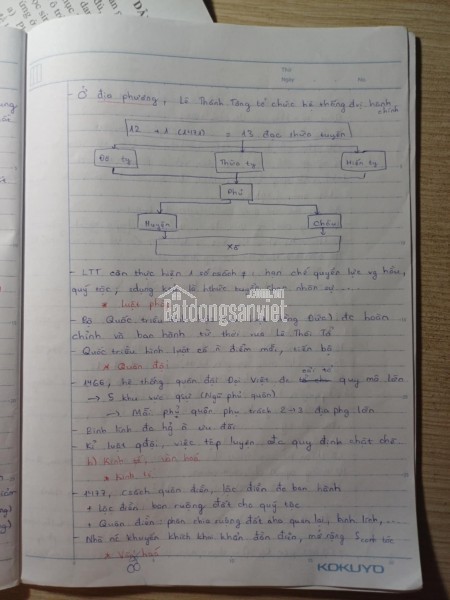 - Ở địa phương, Lê Thánh Tông tổ chức hệ thống đvị hành chính
12 + 1 (1471) = 13 đạo thừa tuyên
Đô ty Thừa ty Hiến ty
Phủ
Huyện Châu
Xã
- LTT còn thực hiện 1 số csách # : hạn chế quyền lực vg hầu,
quý tộc; sdụng chế độ tuyển chọn nhân sự ...
* Luật pháp
- Bộ Quốc triều Hồng Đức) đc hoàn
chỉnh và ban hành từ thời vua Lê Thái Tổ
- Quốc triều hình luật có n điểm mới, tiến bộ
* Quân đội
- 1466, hệ thống quân đội Đại Việt đc cải tổ quy mô lớn
→ 5 khu vực qsự (Ngũ phủ quân)
→ Mỗi phủ quân phụ trách 2→3 địa phg lớn
- Binh lính đc hg n ưu đãi
- Kỉ luật qđội, việc tập luyện đc quy định chặt chẽ
b) Kinh tế, văn hoá
* Kinh tế
- 1477, csách quân điền, lộc điền đc ban hành
+ Lộc điền: ban ruộng đất cho quý tộc
+ Quân điền: phân chia ruộng đất cho quan lại, binh lính, ...
- Nhà nc khuyến khích khai khẩn đồn điền, mở rộng S canh tác
* Văn hoá
Cổ
.com.vn
Batdongsanviet
KOKUYO
No